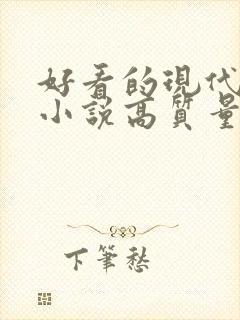 好看的現代
小說高質量
下筆愁